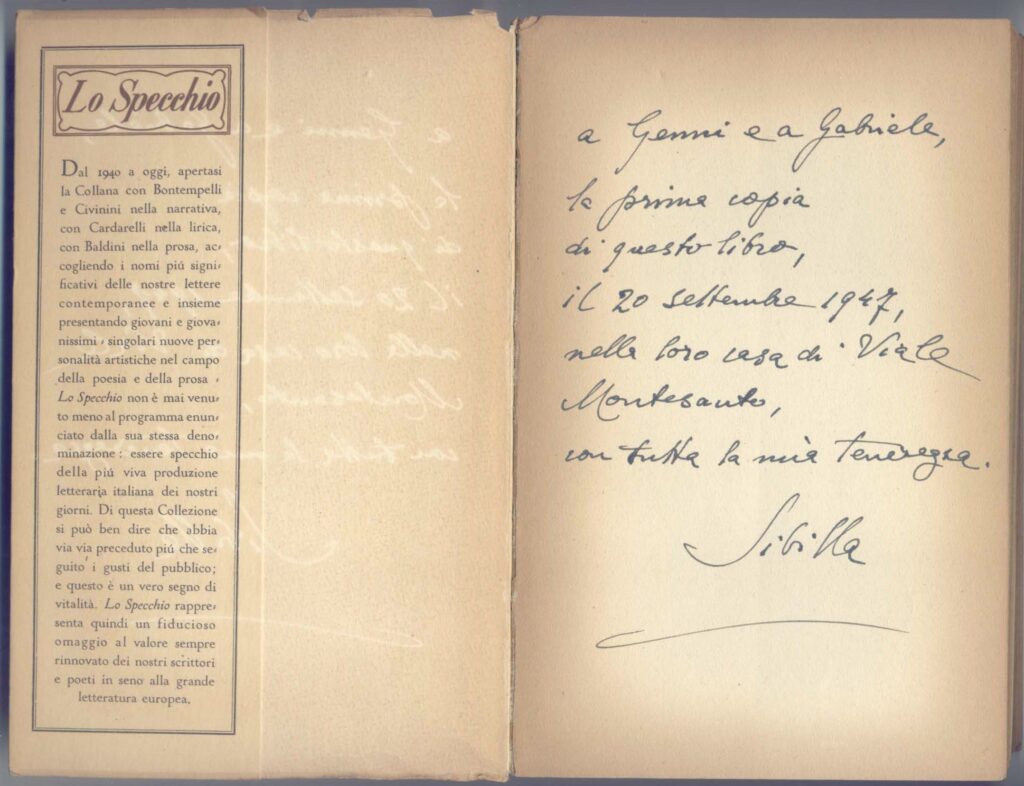 Lo Specchio
Dal 1940 a oggi, apertasi
la Collana con Bontempelli
e Civinini nella narrativa,
con Cardarelli nella lirica,
con Baldini nella prosa, ac-
cogliendo i nomi piú signi-
ficativi delle nostre lettere
contemporanee e insieme
presentando giovani e giova-
nissimi - singolari nuove per-
sonalità artistiche nel campo
della poesia e della prosa -
Lo Specchio non è mai venu-
to meno al programma enun-
ciato dalla sua stessa deno-
minazione: essere specchio
della piú viva produzione
letteraria italiana dei nostri
giorni. Di questa Collezione
si può ben dire che abbia
via via preceduto piú che se-
guito i gusti del pubblico;
e questo è un vero segno di
vitalità. Lo Specchio rappre-
senta quindi un fiducioso
omaggio al valore sempre
rinnovato dei nostri scrittori
e poeti in seno alla grande
letteratura europea.
a Genni e a Gabriele,
la prima copia
di questo libro,
il 20 settembre 1947,
nella loro casa di Viale
Montesanto,
con tutta la mia tenerezza.
Sibilla